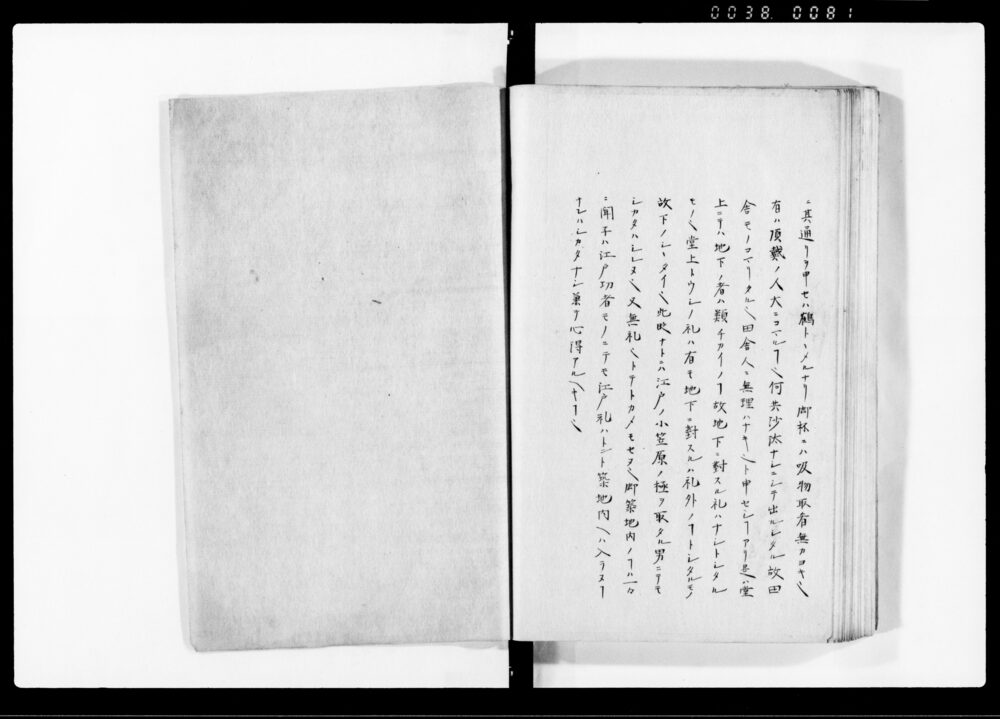 0038 0081
ニ其通リヲ申セハ鶴トヽメルナリ御杯ニハ吸物取者無カヨキ也
有ハ頂戴ノ人大ニコマルヿ也何共沙汰ナシニシテ出ルレタル故田
舎モノコマリタル也田舎人ニ無理ハナキ也ト申セシヿアリ是ハ堂
上ニテハ地下ノ者ハ類チカイノヿ故地下ニ對スル礼ハナシトシタル
モノ也堂上トウシノ礼ハ有モ地下ニ對スルハ礼外ノヿトシタルモノ
故下ノシヽタイ也此時ナトニハ江戸ノ小笠原ノ極ヲ取タル男ニテモ
シカタハシレヌ也又無礼也トテトカメモセヌ也御築地内ノヿハ一々
ニ聞子ハ江戸功者モノニテモ江戸礼ハトント築地内ヘハ入ラヌヿ
ナレハシカタナシ兼テ心得アルヘキヿ也